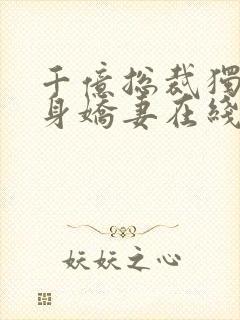 千億总裁獨
身嬌妻在綫
妖妖之心